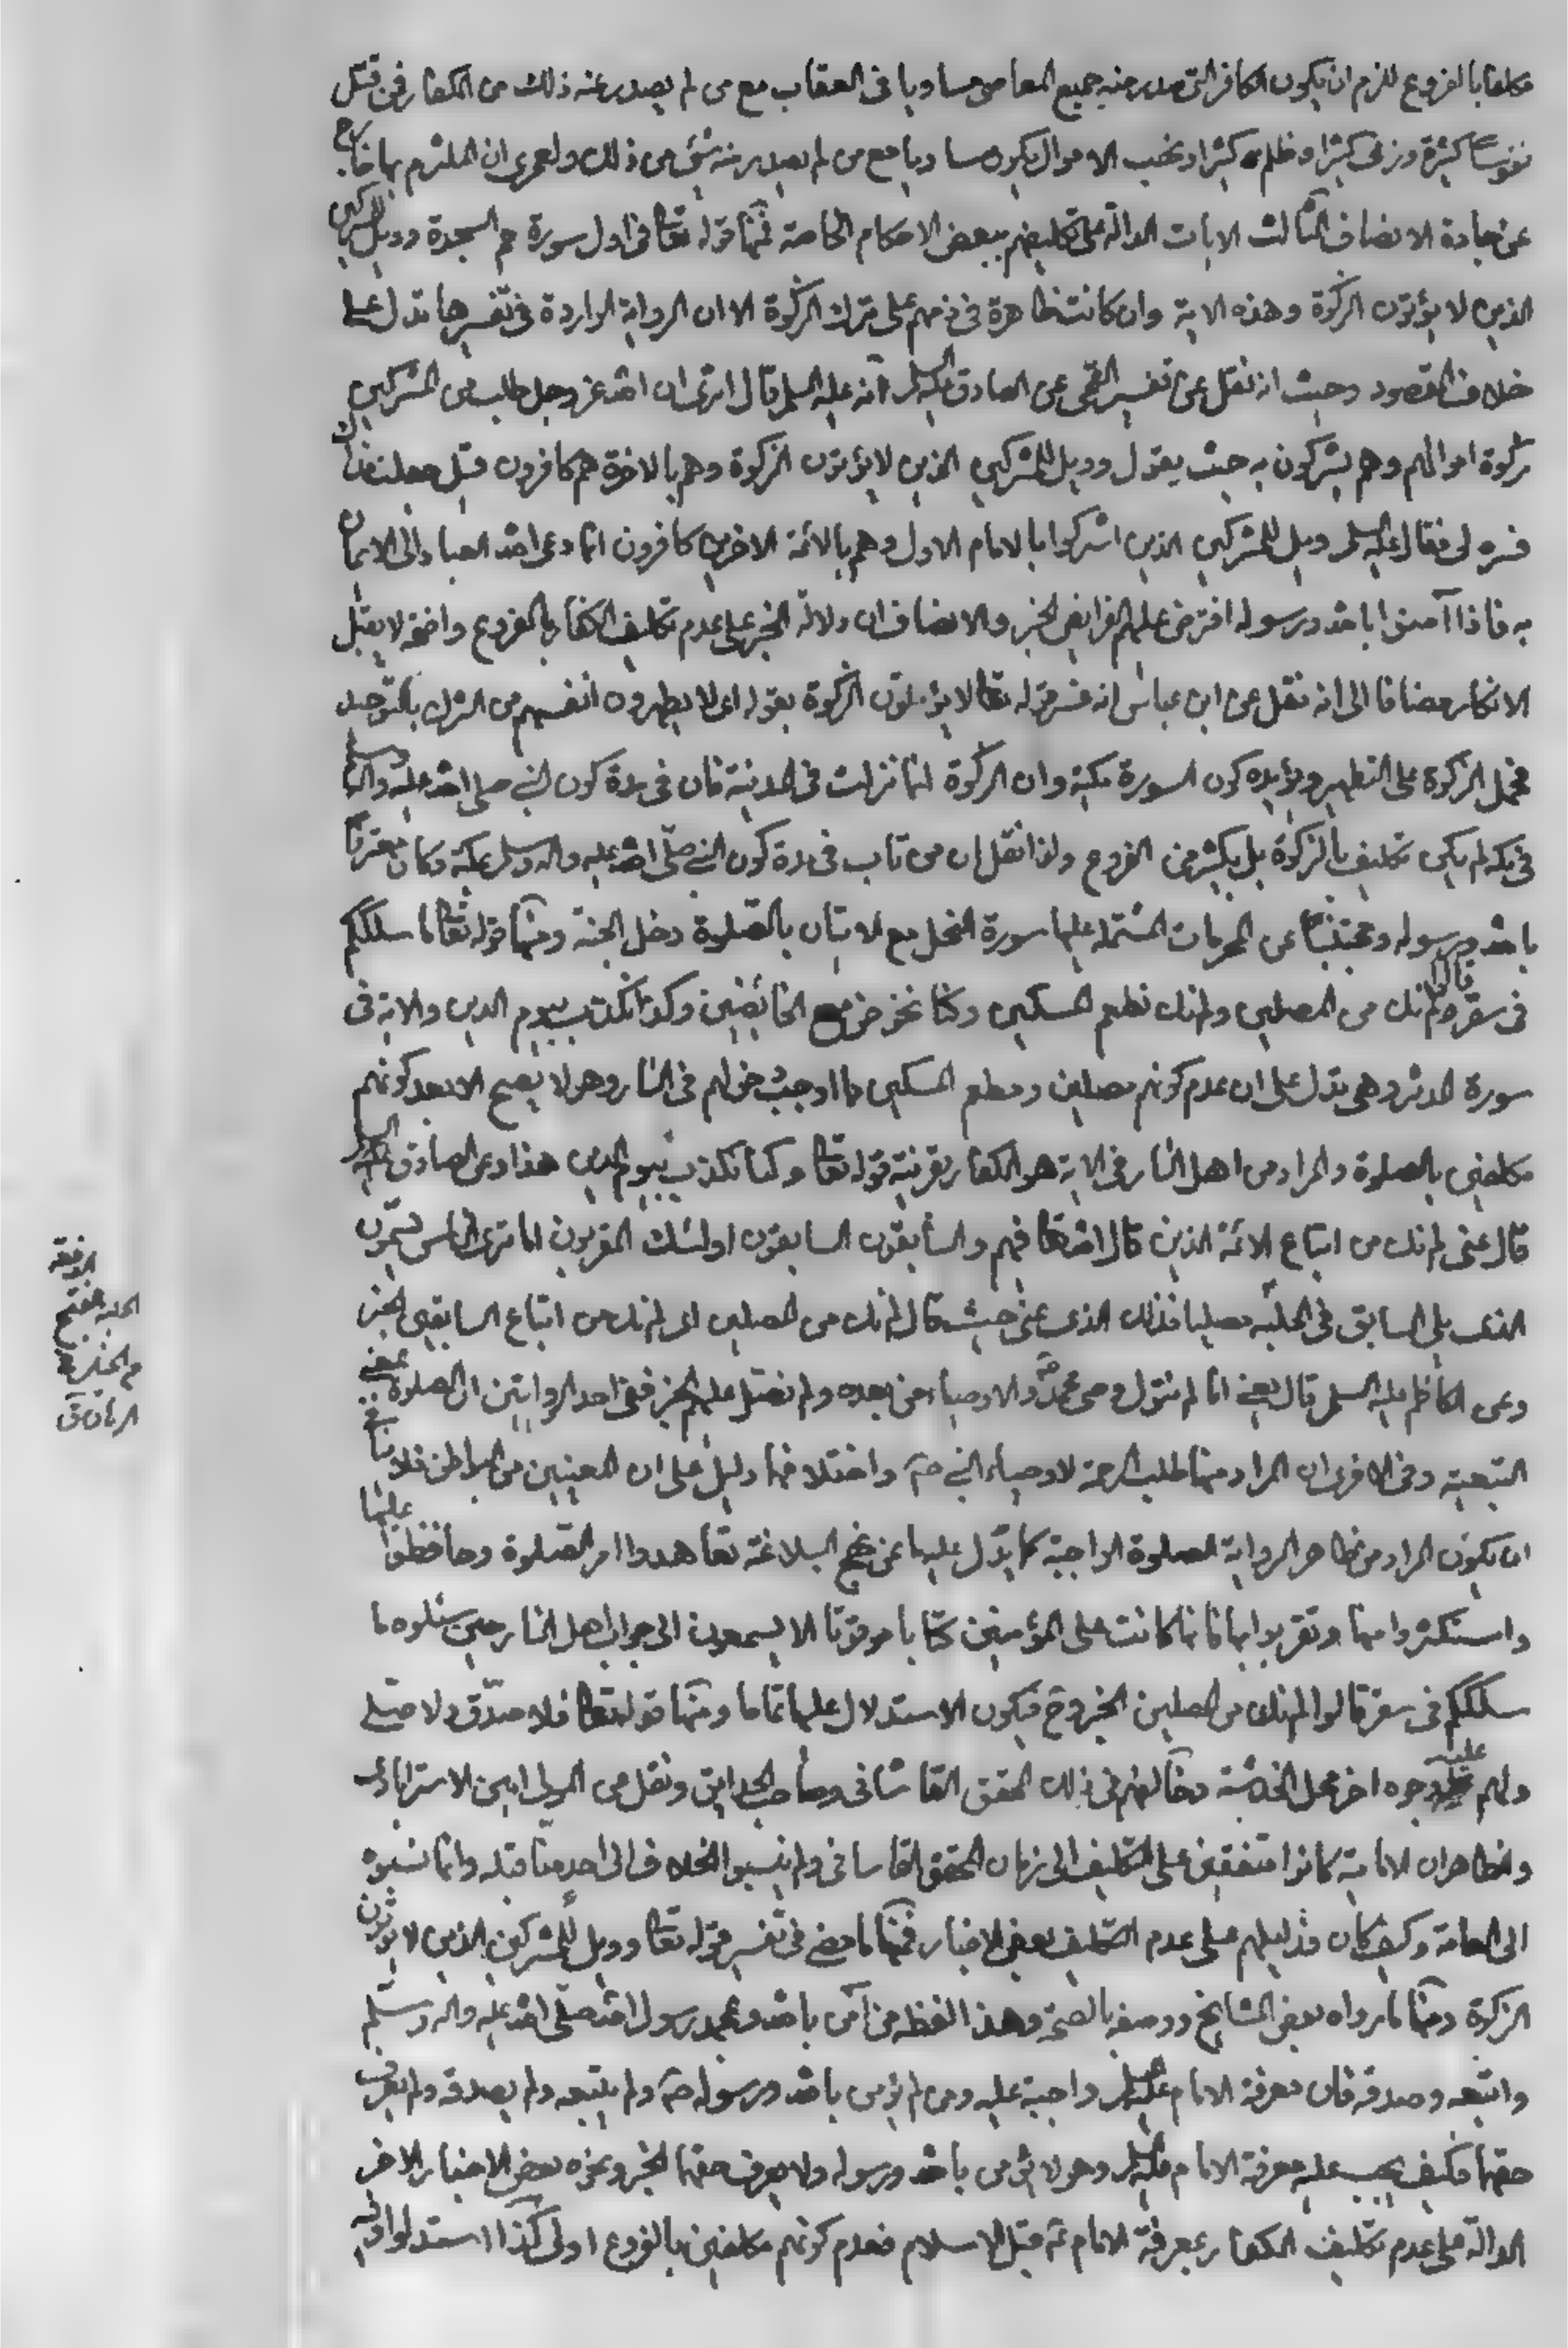 مكلفا بالفروع للزم ان يكون الكافر الذى صدر منه جميع المعاصى مساويا فى العقاب مع من لم يصدر عنه ذلك من الكفار فمن قتل
نفوسا كثيرة وزنى كثيرا وظلم كثيرا ونهب الاموال يكون مساويا مع من لم يصدر منه شئ من ذلك ولعمرى ان الملتزم بهذا خارج
عن جادة الانصاف الثالث الايات الدالة على تكليفهم ببعض الاحكام الخاصة فمنها قوله تعالى فى اول سورة حم السجدة وويل للمشركين
الذين لا يؤتون الزكوة وهذه الاية وان كانت ظاهرة فى ذمهم على ترك الزكوة الا ان الرواية الواردة فى تفسيرها تدل على
خلاف المقصود وحيث انه نقل عن تفسير القمى عن الصادق عليه السلم انه عليه السلم قال اترى ان الله عز وجل طلب من المشركين
زكوة اموالهم وهم يشركون به حيث يقول وويل للمشركين الذين لا يؤتون الزكوة وهم بالاخرة هم كافرون قيل جعلت فداك
فسره لى فقال عليه السلم ويل للمشركين الذين اشركوا بالامام الاول وهم بالائمة الاخرين كافرون انما دعى الله العباد الى الايمان
به فاذا آمنوا بالله ورسوله افترض عليهم الفرايض الخبر والانصاف ان دلالة الخبر على عدم تكليف الكفار بالفروع واضحة لا يقبل
الانكار مضافا الى انه نقل عن ابن عباس انه فسر قوله تعالى لا يؤتون الزكوة بقوله اى لا يطهرون انفسهم من الشرك بالتوحيد
فحمل الزكوة على التطهير ويؤيده كون السورة مكية وان الزكوة انما نزلت فى المدينة فان فى مدة كون النبى صلى الله عليه واله وسلم
فى مكة لم يكن تكليف بالزكوة بل بكثير من الفروع ولذا نقل ان من تاب فى مدة كون النبى صلى الله عليه واله وسلم بمكة وكان معترفا
بالله ورسوله ومجتنبا عن المحرمات المشتملة عليها سورة النحل مع الاتيان بالصلوة دخل الجنة ومنها قوله تعالى ما سلككم
فى سقر قالوا لم نك من المصلين ولم نك نطعم المسكين وكنا نخوض مع الخائضين وكنا نكذب بيوم الدين والاية فى
سورة المدثر وهى تدل على ان عدم كونهم مصلين ومطعم المسكين مما اوجب دخولهم فى النار وهو لا يصح الا بعد كونهم
مكلفين بالصلوة والمراد من اهل النار فى الاية هو الكفار بقرينة قوله تعالى وكنا نكذب بيوم الدين هذا وعن الصادق عليه السلم
قال عنى لم نك من اتباع الائمة الذين قال الله تعالى فيهم والسابقون السابقون اولئك المقربون اما ترى الناس يسمون
الذى يلى السابق فى الحلبة مصليا فذلك الذى عنى حيث قال لم نك من المصلين اى لم نك من اتباع السابقين الخبر
وعن الكاظم عليه السلم قال يعنى انا لم نتول وصى محمد ص والاوصياء من بعده ولم نصل عليهم الخبر ففى احد الروايتين ان الصلوة بمعنى
التبعية وفى الاخرى ان المراد منها طلب الرحمة لاوصياء النبى ص واختلافها دليل على ان المعنيين من البواطن فلا ينافى
ان يكون المراد من ظاهر الرواية الصلوة الواجبة كما يدل عليها عن نهج البلاغة تعاهدوا امر الصلوة وحافظوا عليها
واستكثروا منها وتقربوا بها فانها كانت على المؤمنين كتابا موقوتا الا يسمعون الى جواب اهل النار حين سئلوا ما
سلككم فى سقر قالوا لم نك من المصلين الخبر وح فيكون الاستدلال عليها تماما ومنها قوله تعالى فلا صدق ولا صلى
ولهم عليه وجوه اخر محل الخدشة وخالفهم فى ذلك المحقق القاشانى وصاحب الحدايق ونقل عن المولى امين الاسترابادى
والظاهر ان الامامية كانوا متفقين على التكليف الى زمان المحقق القاسانى ولم ينسبوا الخلاف الى احد منا قبله وانما نسبوه
الى العامة وكيف كان فدليلهم على عدم التكليف بعض الاخبار فمنها ما مضى فى تفسير قوله تعالى وويل للمشركين الذين لا يؤتون
الزكوة ومنها ما رواه بعض المشايخ ووصفه بالصحة وهذا لفظه من آمن بالله وبمحمد رسول الله صلى الله عليه واله وسلم
واتبعه وصدقه فان معرفة الامام عليه السلم واجبة عليه ومن لم يؤمن بالله ورسوله ص ولم يتبعه ولم يصدقه ولم يعرف
حقهما فكيف يجب عليه معرفة الامام عليه السلم وهو لا يؤمن بالله ورسوله ولا يعرف حقهما الخبر ونحوه بعض الاخبار الاخر
الدالة على عدم تكليف الكفار بمعرفة الامام ع قبل الاسلام فعدم كونهم مكلفين بالفروع اولى كذا استدلوا وفيه